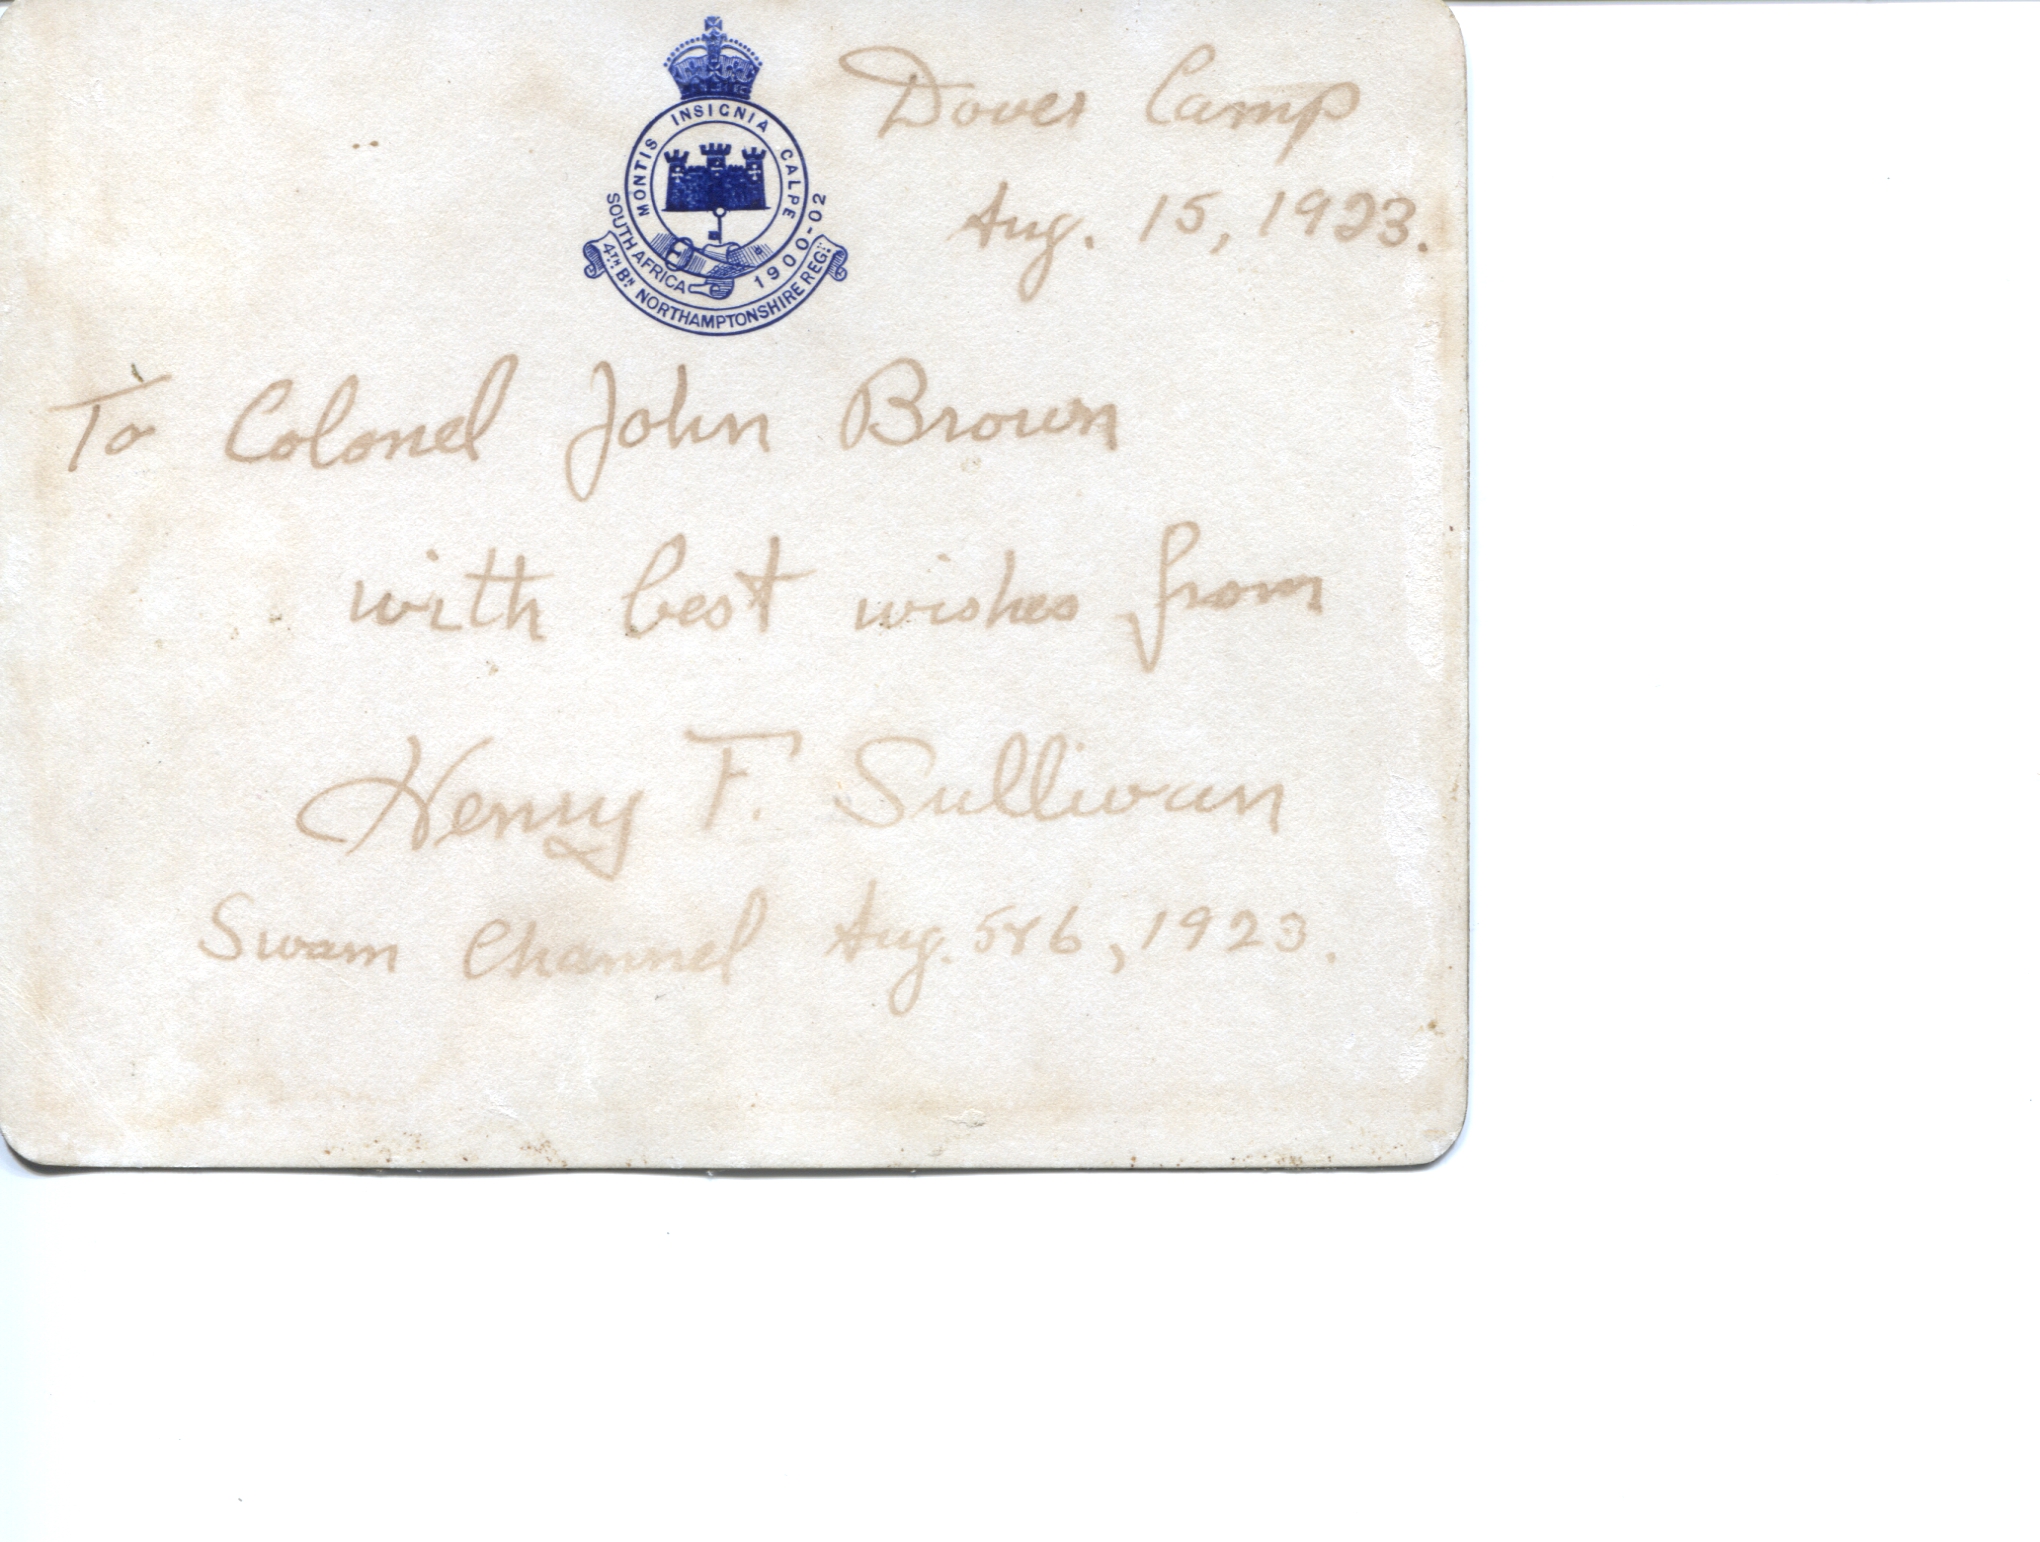 MONTIS INSIGNIA CALPE
SOUTH AFRICA 1900-02
4TH BN NORTHAMPTONSHIRE REGT.
Dover Camp
Aug. 15, 1923.
To Colonel John Brown
with best wishes from
Henry F. Sullivan
Swam Channel Aug. 5&6, 1923.